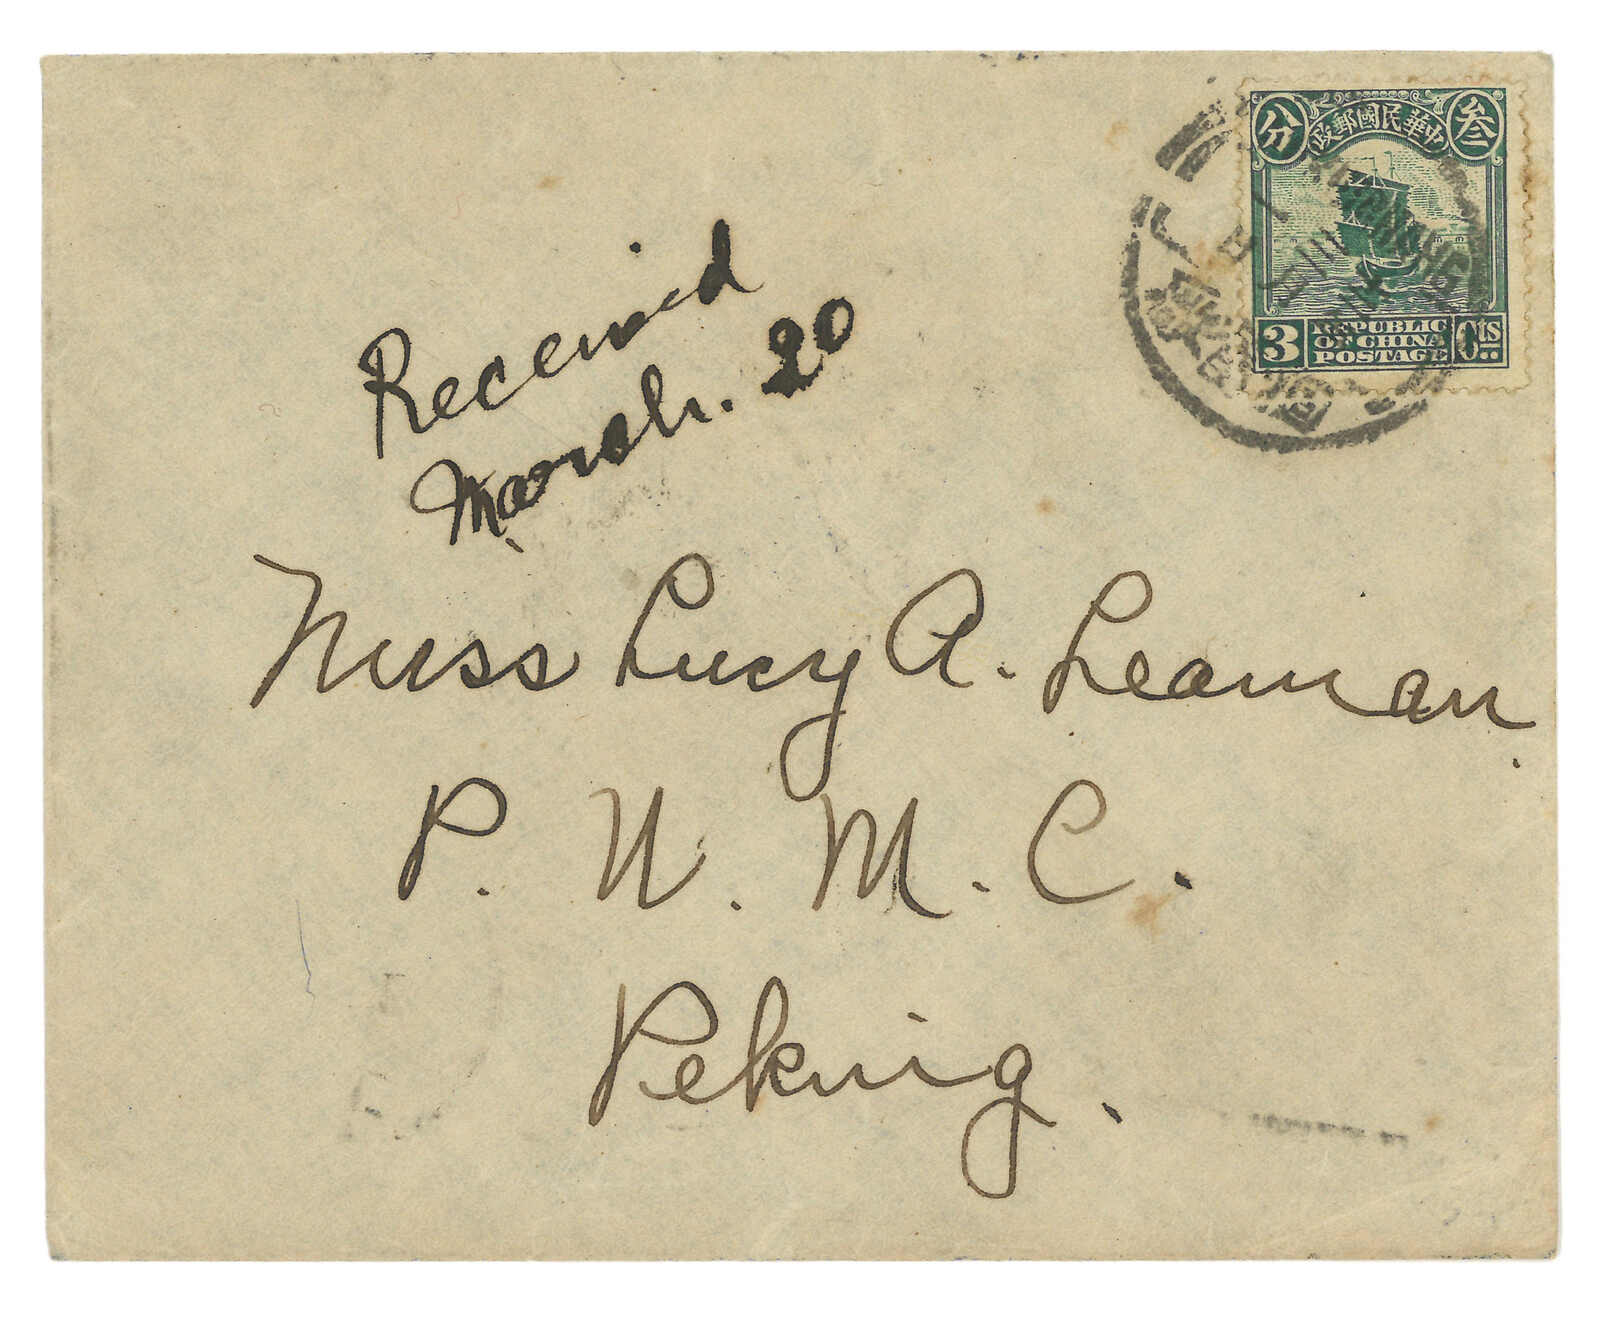 叁
中華民國郵政
分
3
REPUBLIC
OF CHINA
POSTAGE
Cts
Received
March. 20
Miss Lucy A. Leaman.
P. U. M. C.
Peking.